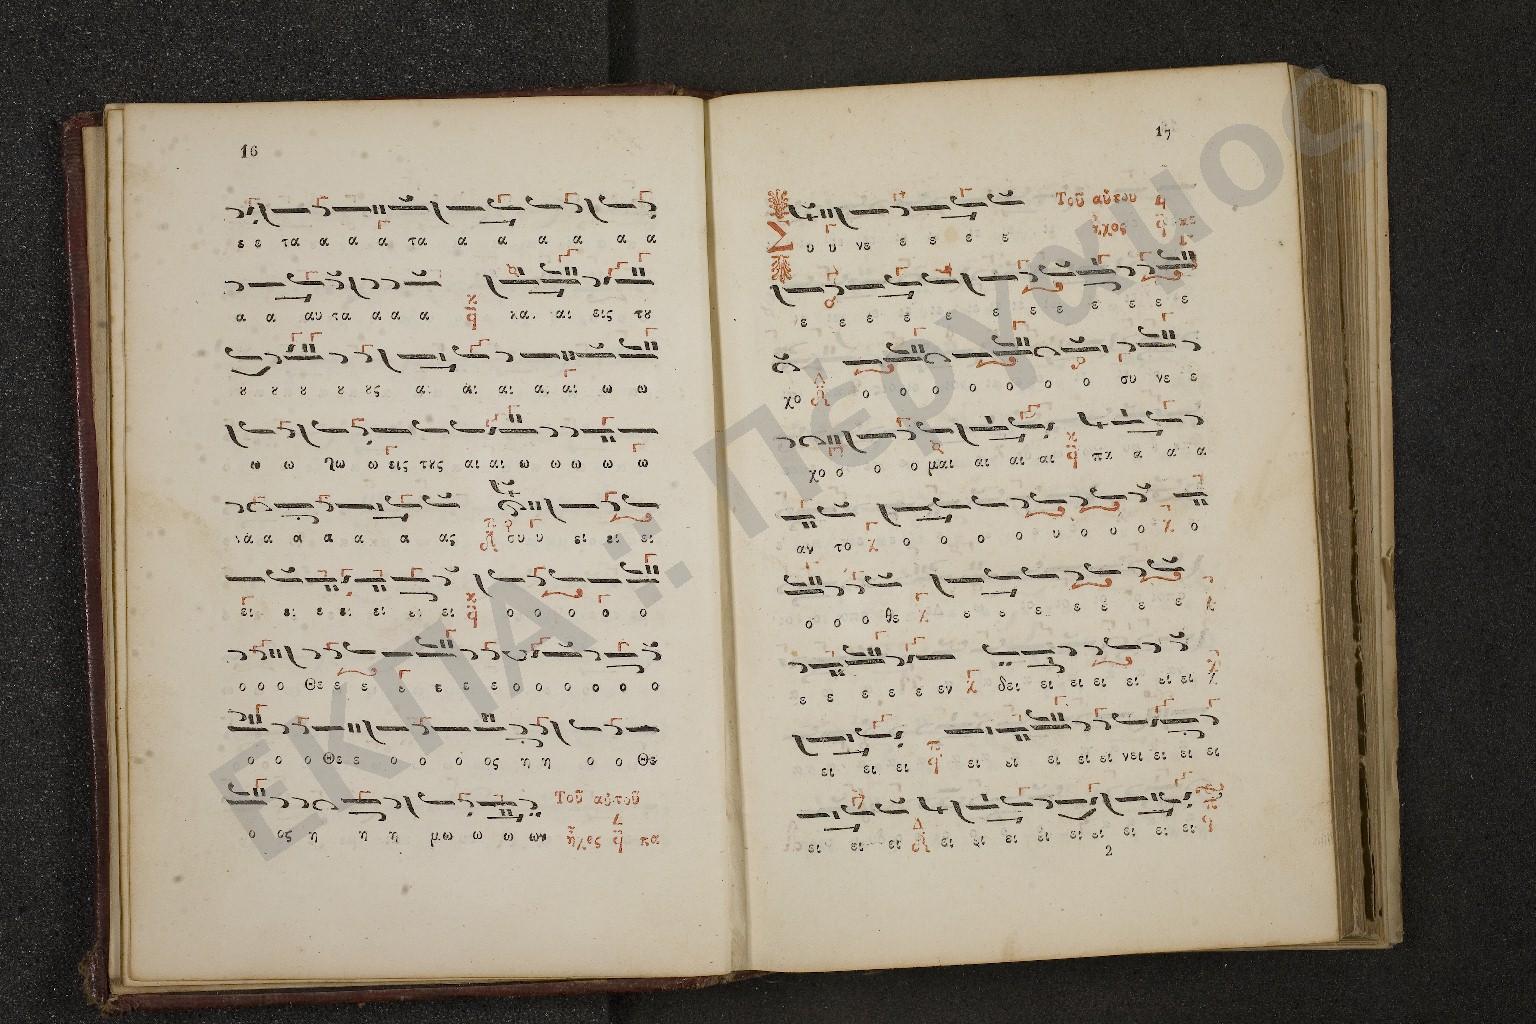 16
ε ε τα α α α τα α α α α α α
α α αυ τα α α α και αι εις τȣ
ȣ ȣ ȣ ȣ ȣς αι αι αι αι αι ω ω
ω ω λω ω εις τȣς αι αι ω ω ω ω ω
νὰ α α α α α ας συ υ ει ει ει
ει ει ε ει ει ει ει ο ο ο ο ο
ο ο ο Θε ε ε ε ε ε ε ο ο ο ο ο ο
ο ο ο Θε ε ο ο ο ος η η ο ο Θε
ο ος η η η μω ω ω ων
Τοῦ αὐτοῦ
ἦχος κα
17
Τοῦ αὐτου
ἦχος κε
Μ υ υ νε ε ε ε ε
ε ε ε ε ε ε ε ε ε ε ε
χο ο ο ο ο ο ο ο συ νε ε
χο ο ο ο μαι αι αι αι πα α α α
αν το ο ο ο ο υ ο υ ο ο
ο ο ο θε ε ε ε ε ε ε
ε ε ε ε ε εν δει ει ει ει ει ει ει
ει ει ει ει ει ει ει ει νει ει ει ει
ει ει ει ει ει ει ει ει ει ει ει
2
ΕΚΠΑ : Πέργαμος